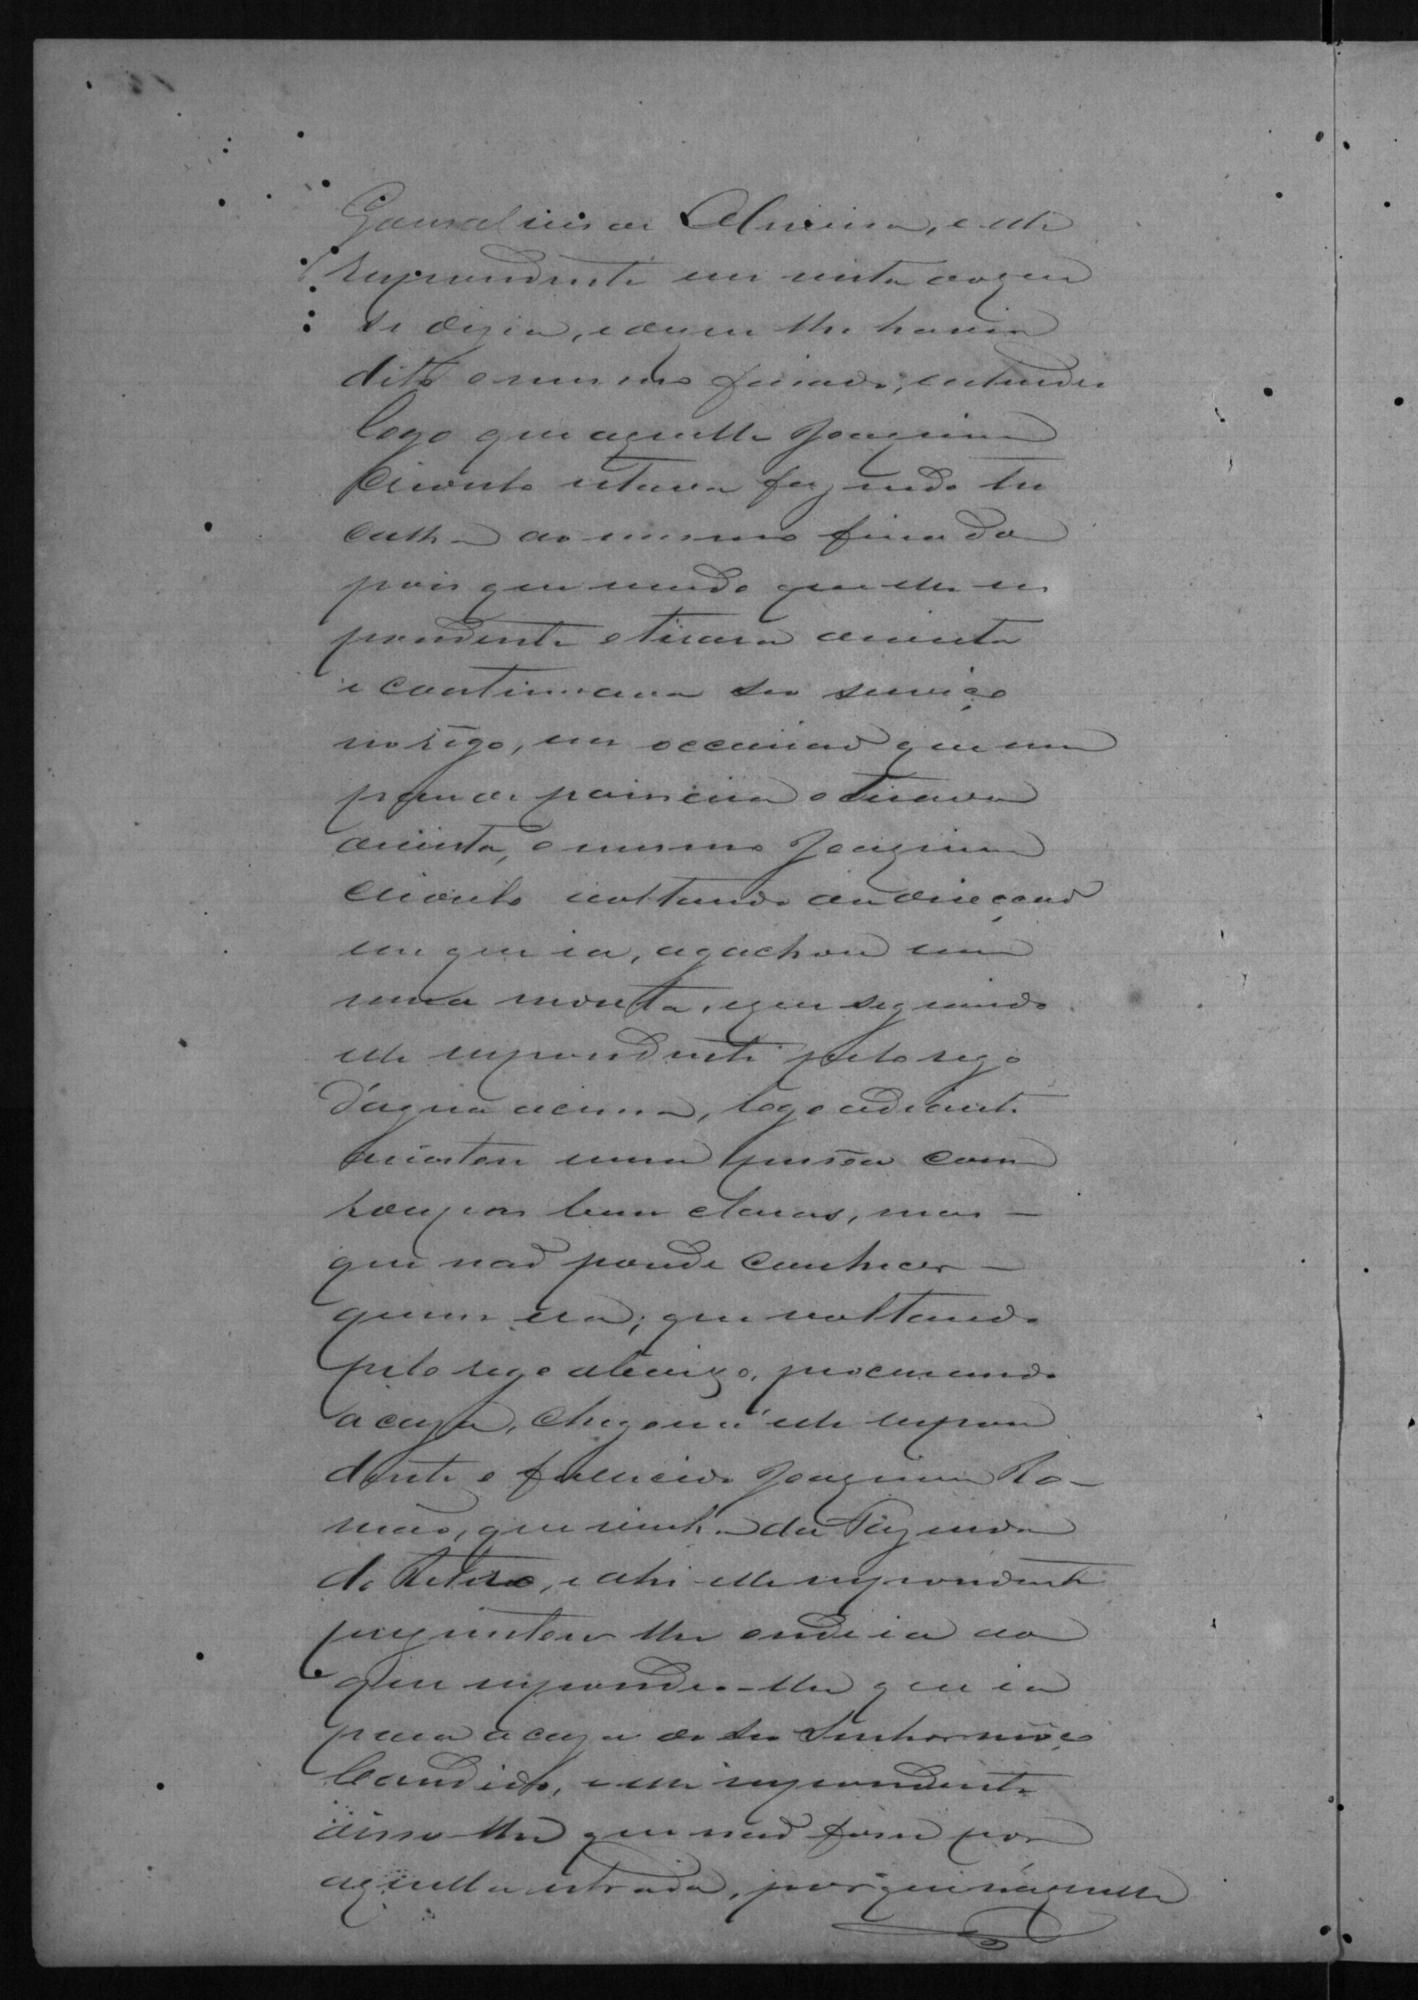 Gonsalves de Oliveira, e elle
respondente em vista do que
se dizia, e do que lhe havia
dito o mesmo finado, entendeu
logo que aquelle Joaquim
Crioulo estava fazendo to
caha ao mesmo finado
pois que vendo que elle res
pondente o tirara da vista
e continuava seo serviço
no rêgo, em occasião que um
pau de paineira o tirava
da vista, o mesmo Joaquim
Crioulo voltando da direção
em que ia, agachou em
uma moita, e que seguindo
elle respondente pelo rego
d'agua acima, logo adiante
avistou uma pessoa com
roupas bem claras, mas
que não poude conhecer
quem era; que voltando
pelo rego abaixo, procurando
a caza, chegou á elle respon
dente o fallecido Joaquim Ro-
mão, que vinha da Fazenda
do Retiro, e ahi elle respondente
perguntou lhe onde ia ao
que respondeo-lhe que ia
para a caza de seo Senhor moço
Candido, e elle respondente
disse-lhe que não fosse por
aquella estrada, porque n'aquella